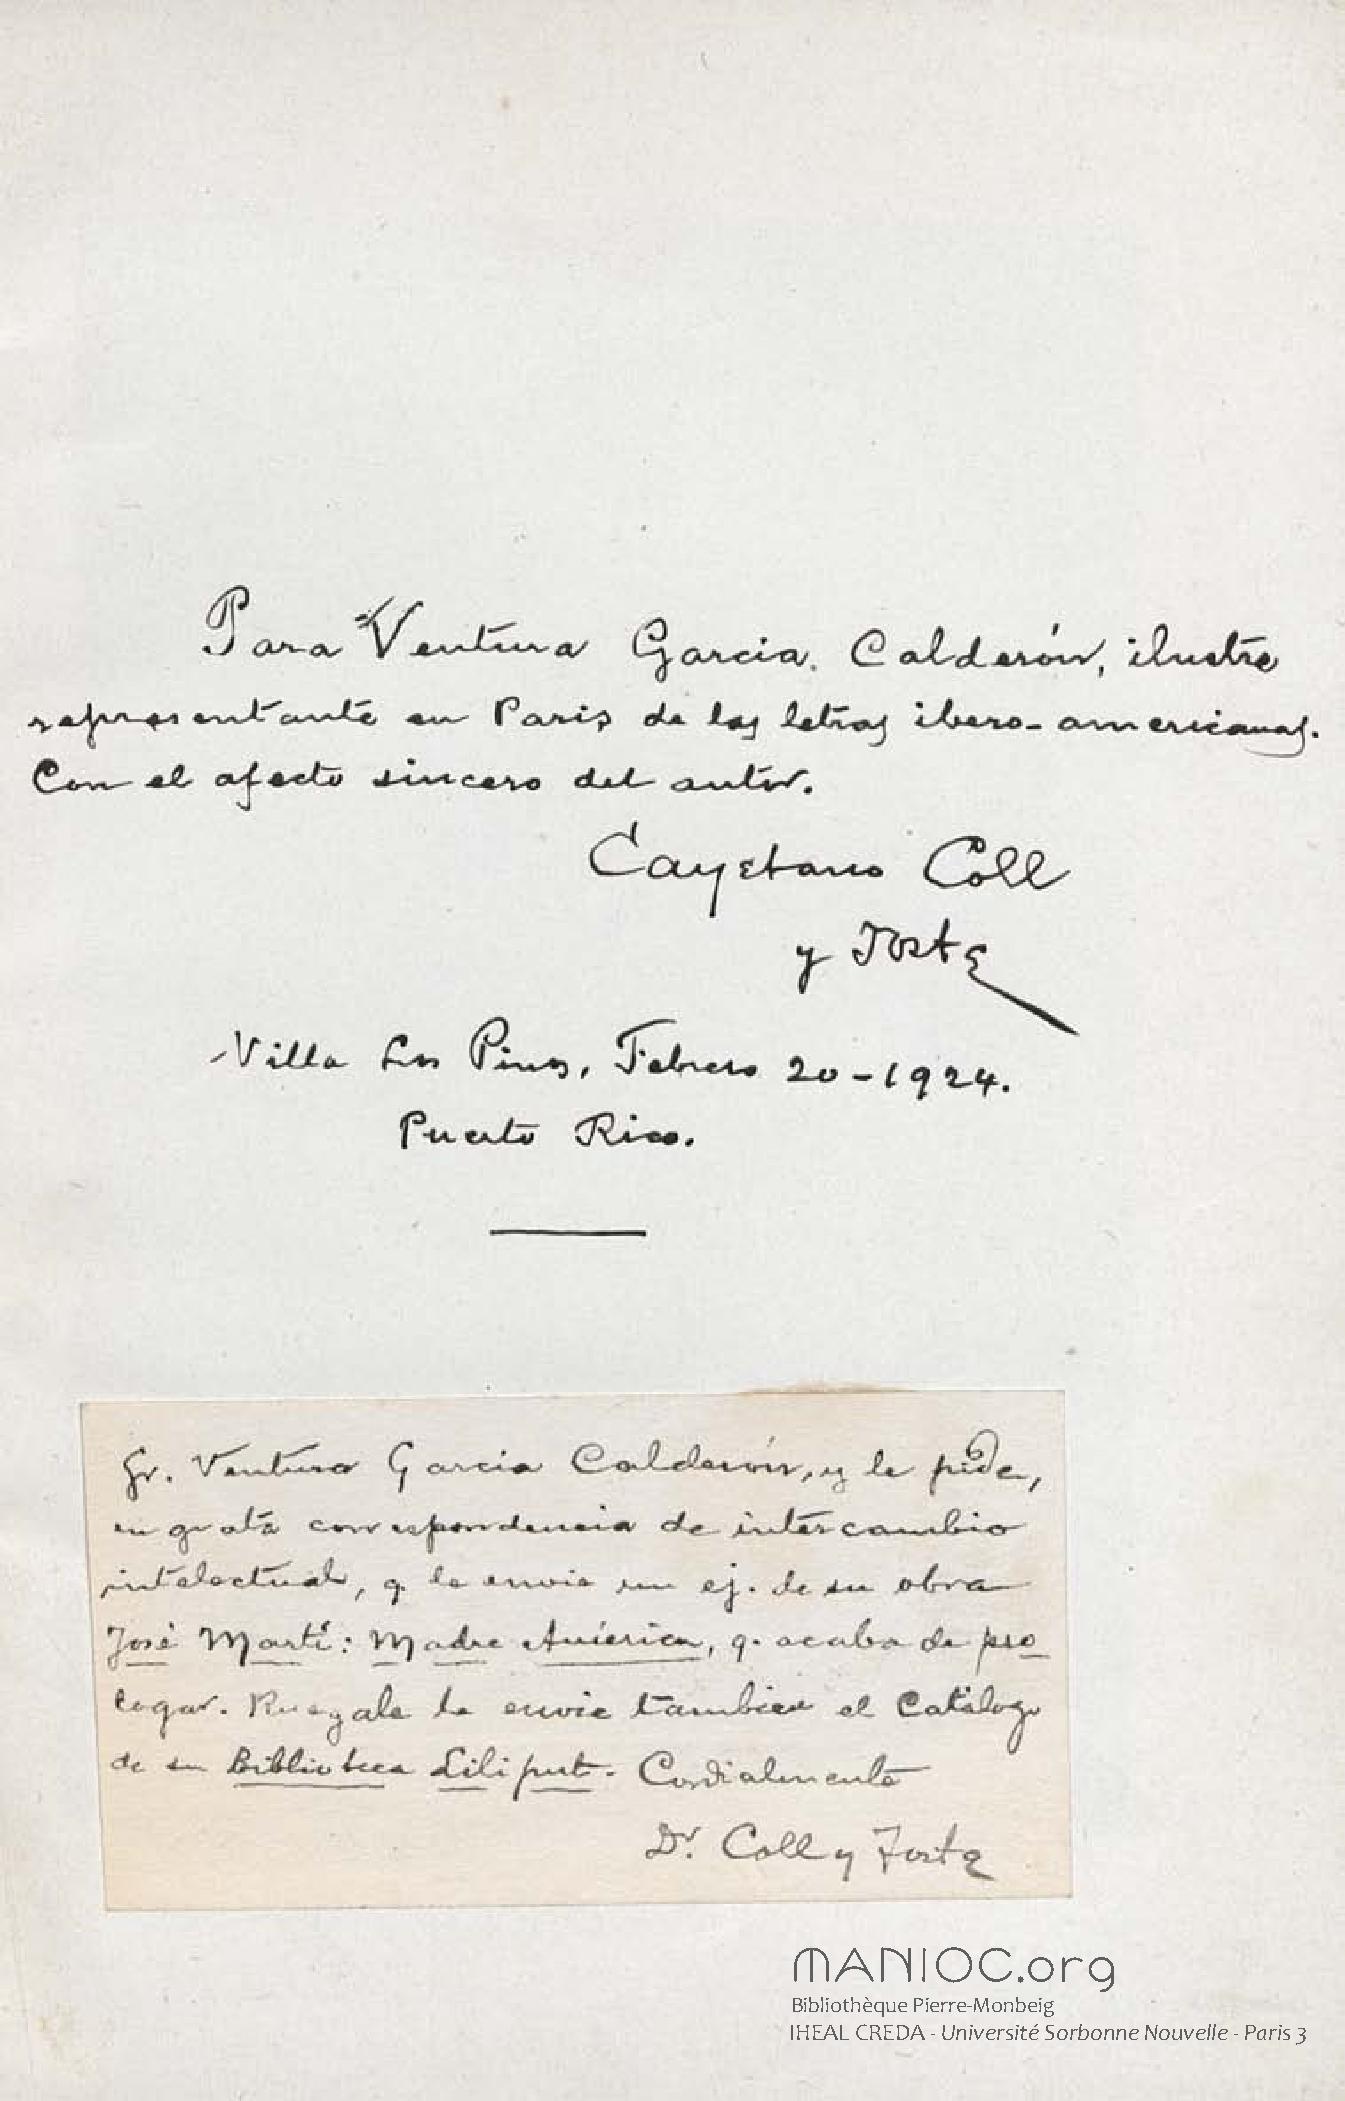 Para Ventura Garcia Calderón, ilustre
representante en Paris de las letras ibero-americanas.
Con el afecto sincero del autor.
Cayetano Coll
y Toste
Villa Los Pinos, Febrero 20-1924.
Puerto Rico.
Sr. Ventura Garcia Calderón, y le pide,
en grata correspondencia de intercambio
intelectual, q. le envie un ej. de su obra
José Martí: Madre América, q. acaba de pro
logar. Ruegale le envie tambien el Catálogo
de su Biblioteca Liliput. Cordialmente
Dr. Coll y Toste
MANIOC.org
Bibliothèque Pierre-Monbeig
IHEAL CREDA - Université Sorbonne Nouvelle - Paris 3